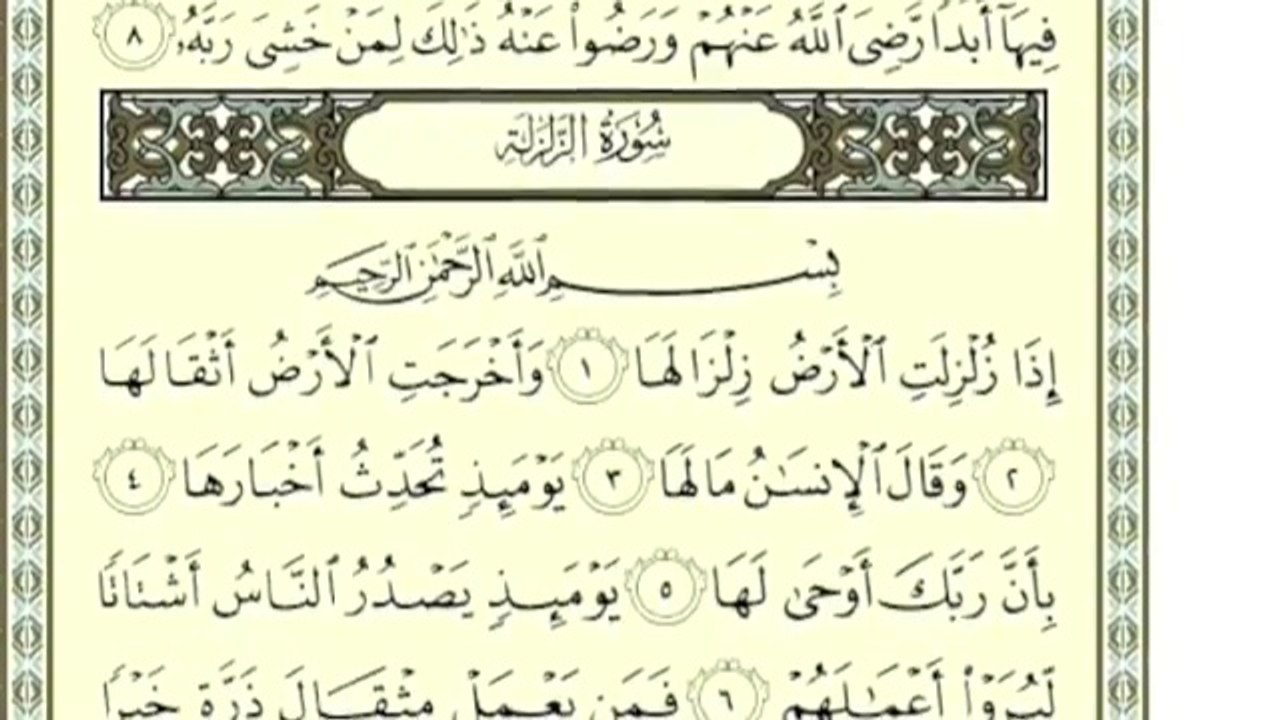 فِيهَآ أَبَدًا رَّضِيَ ٱللَّهُ عَنْهُمْ وَرَضُوا۟ عَنْهُ ذَٰلِكَ لِمَنْ خَشِىَ رَبَّهُۥ ٨
سُورَةُ الزَّلْزَلَةِ
بِسْمِ ٱللَّهِ ٱلرَّحْمَٰنِ ٱلرَّحِيمِ
إِذَا زُلْزِلَتِ ٱلْأَرْضُ زِلْزَالَهَا ١ وَأَخْرَجَتِ ٱلْأَرْضُ أَثْقَالَهَا
٢ وَقَالَ ٱلْإِنسَٰنُ مَا لَهَا ٣ يَوْمَئِذٍ تُحَدِّثُ أَخْبَارَهَا ٤
بِأَنَّ رَبَّكَ أَوْحَىٰ لَهَا ٥ يَوْمَئِذٍ يَصْدُرُ ٱلنَّاسُ أَشْتَاتًا
لِّيُرَوْا۟ أَعْمَٰلَهُمْ ٦ فَمَن يَعْمَلْ مِثْقَالَ ذَرَّةٍ خَيْرًا